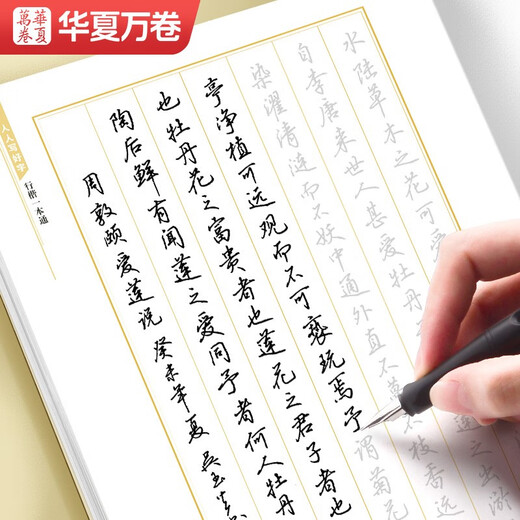 華夏萬卷
华夏万卷
人人写好字
行楷一本通
水陆草木之花可
自李唐来世人甚爱牡丹
之出淤
染濯清涟而不妖中通外直不蔓不枝香远
亭净植可远观而不可亵玩焉予谓菊花
也牡丹花之富贵者也莲花之君子者也
陶后鲜有闻莲之爱同予者何人牡丹
周敦颐爱莲说 癸未年夏 吴玉生